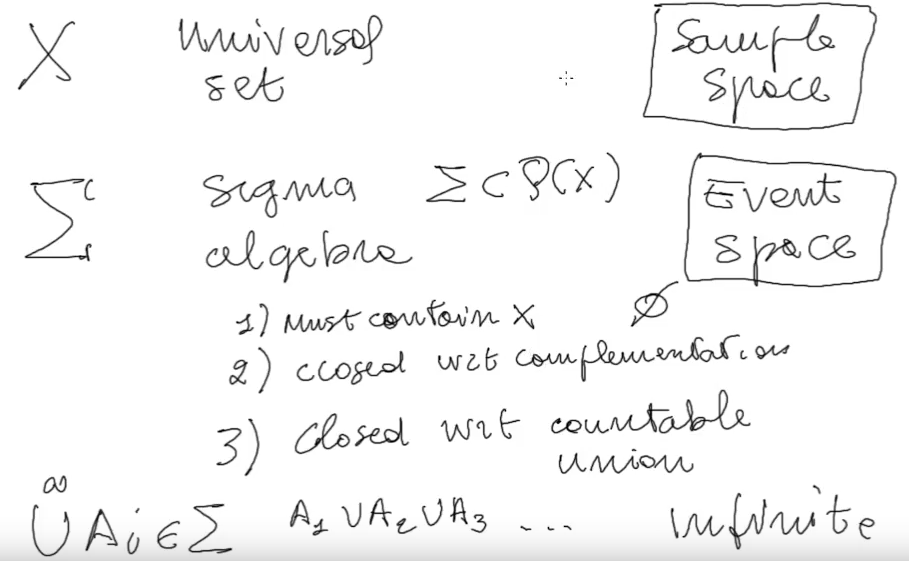 X universal set
Sample Space
Σ sigma algebra Σ ⊂ P(X)
Event Space
1) Must contain X ∅
2) closed wrt complementation
3) closed wrt countable union
∞
∪ Ai ∈ Σ A1 ∪ A2 ∪ A3 ... infinite